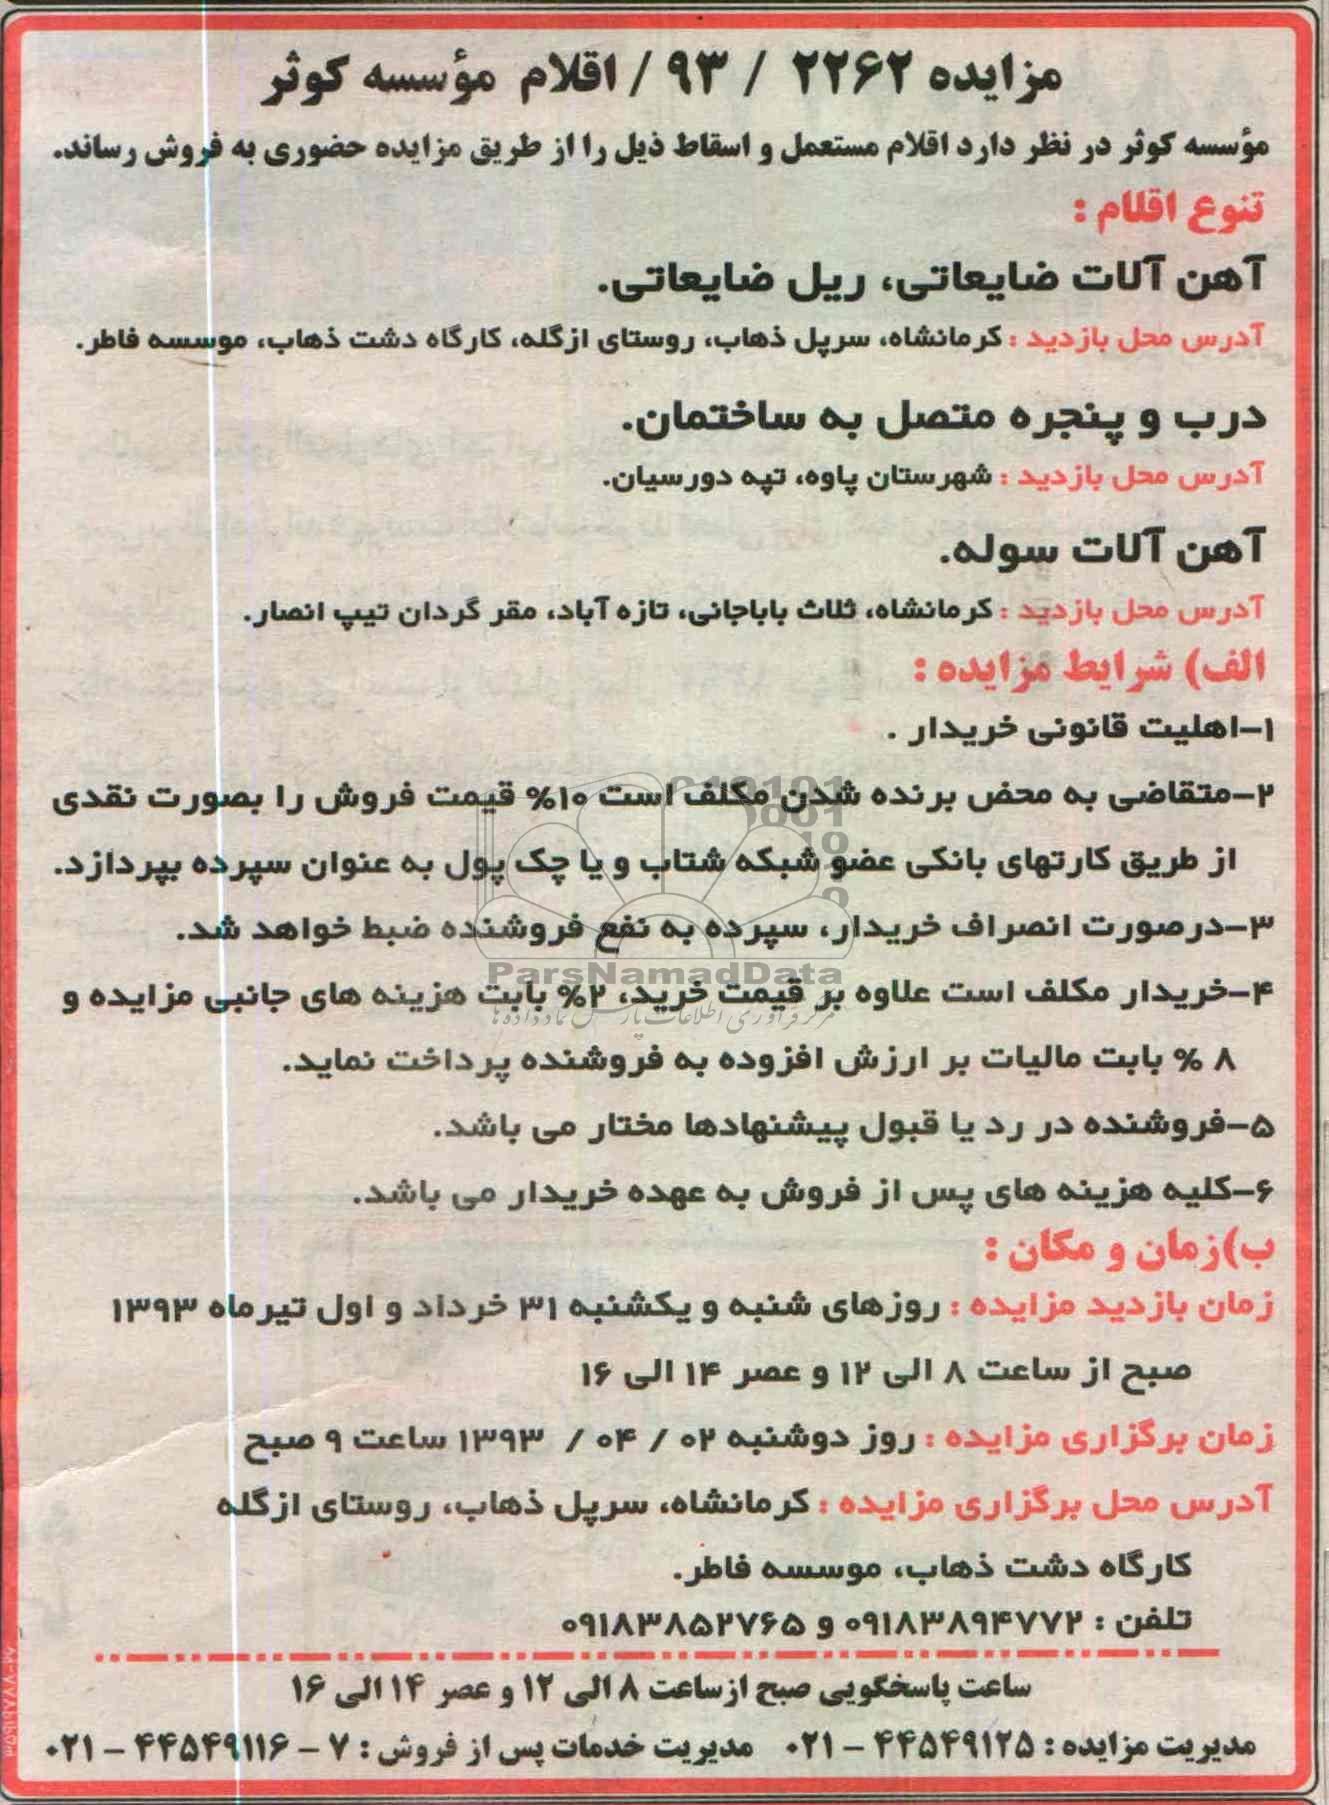 مزایده ۲۲۶۲ / ۹۳ / اقلام مؤسسه کوثر
مؤسسه کوثر در نظر دارد اقلام مستعمل و اسقاط ذیل را از طریق مزایده حضوری به فروش رساند.
تنوع اقلام :
آهن آلات ضایعاتی، ریل ضایعاتی.
آدرس محل بازدید : کرمانشاه، سرپل ذهاب، روستای ازگله، کارگاه دشت ذهاب، موسسه فاطر.
درب و پنجره متصل به ساختمان.
آدرس محل بازدید : شهرستان پاوه، تپه دورسیان.
آهن آلات سوله.
آدرس محل بازدید : کرمانشاه، ثلاث باباجانی، تازه آباد، مقر گردان تیپ انصار.
الف) شرایط مزایده :
۱-اهلیت قانونی خریدار .
۲-متقاضی به محض برنده شدن مکلف است ۱۰% قیمت فروش را بصورت نقدی
از طریق کارتهای بانکی عضو شبکه شتاب و یا چک پول به عنوان سپرده بپردازد.
۳-درصورت انصراف خریدار، سپرده به نفع فروشنده ضبط خواهد شد.
ParsNamadData
۴-خریدار مکلف است علاوه بر قیمت خرید، ۲% بابت هزینه های جانبی مزایده و
مرکز فرآوری اطلاعات پارس نماد داده ها
۸ % بابت مالیات بر ارزش افزوده به فروشنده پرداخت نماید.
۵-فروشنده در رد یا قبول پیشنهادها مختار می باشد.
۶-کلیه هزینه های پس از فروش به عهده خریدار می باشد.
ب)زمان و مکان :
زمان بازدید مزایده : روزهای شنبه و یکشنبه ۳۱ خرداد و اول تیرماه ۱۳۹۳
صبح از ساعت ۸ الی ۱۲ و عصر ۱۴ الی ۱۶
زمان برگزاری مزایده : روز دوشنبه ۰۲ / ۰۴ / ۱۳۹۳ ساعت ۹ صبح
آدرس محل برگزاری مزایده : کرمانشاه، سرپل ذهاب، روستای ازگله
کارگاه دشت ذهاب، موسسه فاطر.
تلفن : ۰۹۱۸۳۸۹۴۷۷۲ و ۰۹۱۸۳۸۵۲۷۶۵
ساعت پاسخگویی صبح ازساعت ۸ الی ۱۲ و عصر ۱۴ الی ۱۶
مدیریت مزایده : ۴۴۵۴۹۱۲۵ - ۰۲۱ مدیریت خدمات پس از فروش : ۷ - ۴۴۵۴۹۱۱۶ - ۰۲۱